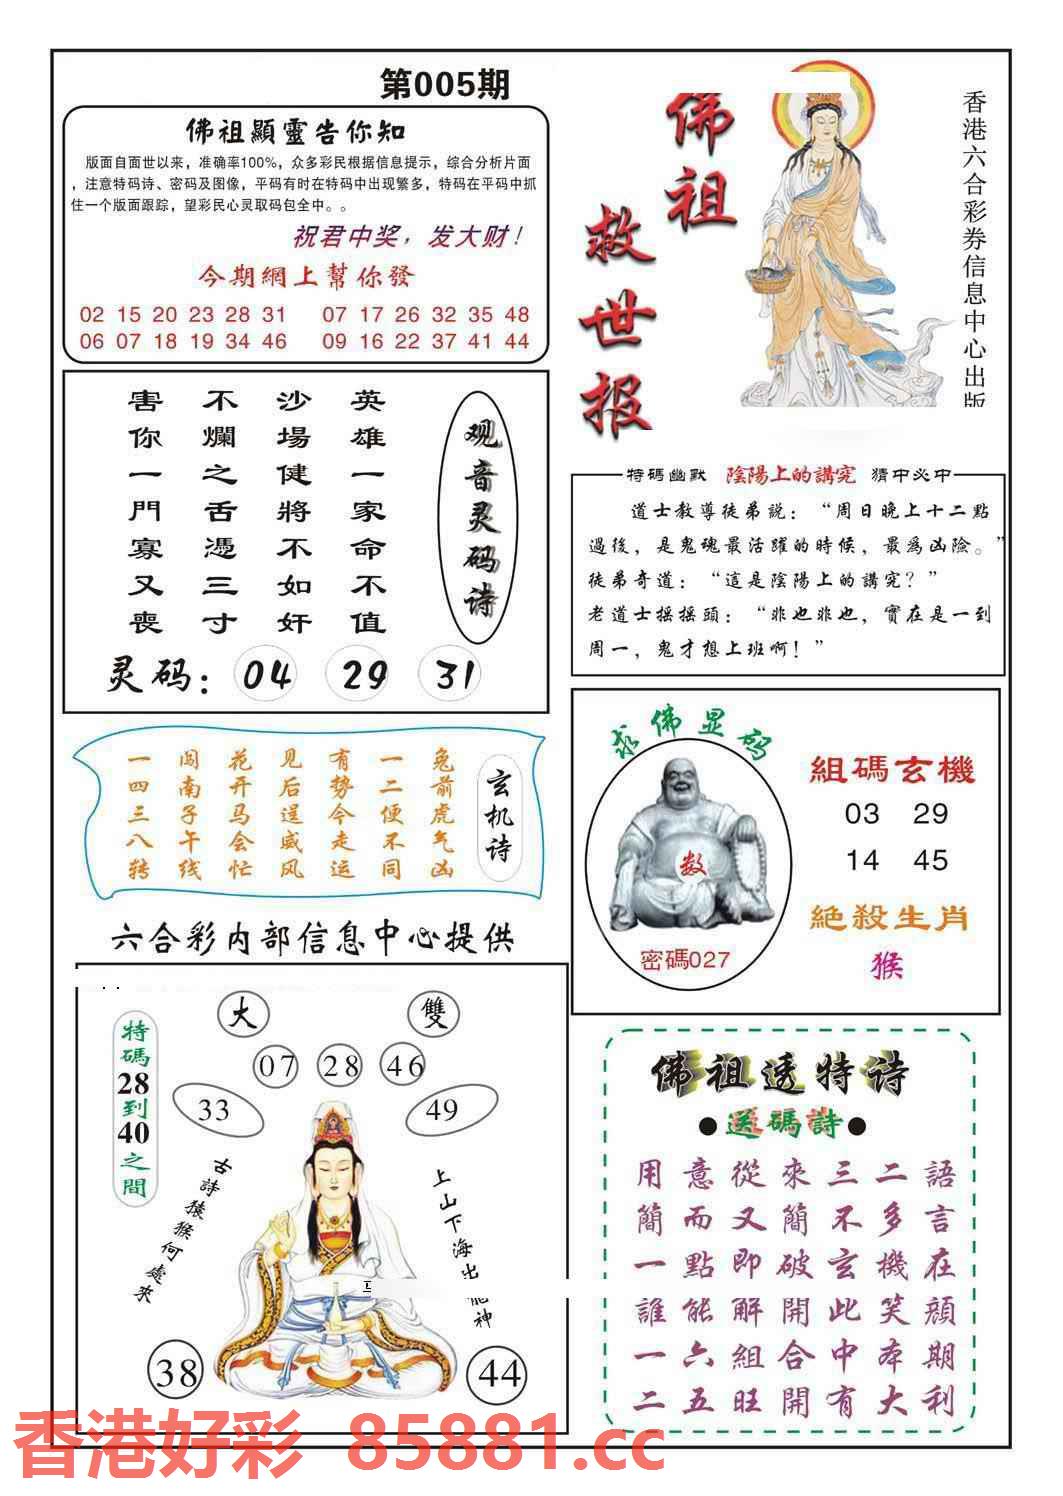 第005期
佛祖顯靈告你知
版面自面世以来，准确率100%，众多彩民根据信息提示，综合分析片面
，注意特码诗、密码及图像，平码有时在特码中出现繁多，特码在平码中抓
住一个版面跟踪，望彩民心灵取码包全中。。
祝君中奖，发大财！
今期網上幫你發
02 15 20 23 28 31 07 17 26 32 35 48
06 07 18 19 34 46 09 16 22 37 41 44
佛祖
救世报
香港六合彩券信息中心出版
观音灵码诗
英雄一家命不值
沙場健將不如奸
不爛之舌憑三寸
害你一門寡又喪
灵码：04 29 31
特碼幽默 陰陽上的講究 猜中必中
道士教導徒弟説：“周日晚上十二點
過後，是鬼魂最活躍的時候，最為凶險。”
徒弟奇道：“這是陰陽上的講究？”
老道士摇摇頭：“非也非也，實在是一到
周一，鬼才想上班啊！”
玄机诗
兔前虎气凶
一二便不同
有势今走运
见后逞威风
花开马会忙
闯南子午线
一四三八转
求佛显码
数
密碼027
組碼玄機
03 29
14 45
絕殺生肖
猴
六合彩内部信息中心提供
大
雙
07 28 46
33
49
特碼28到40之間
古詩猿猴何處來
上山下海出龍神
38
44
佛祖透特诗
●送碼詩●
用意從來三二語
簡而又簡不多言
一點即破玄機在
誰能解開此笑顔
一六組合中本期
二五旺開有大利
香港好彩 85881.cc